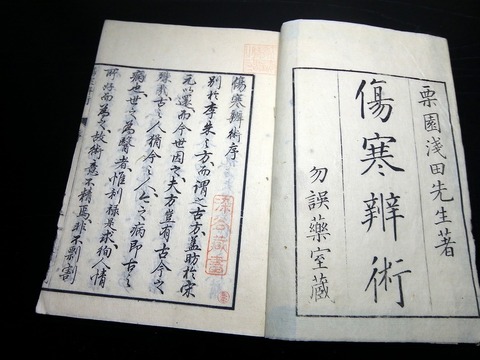 栗園淺田先生著
傷寒辨術
勿誤藥室藏
傷寒辨術序
別於李朱之方而謂之古方蓋助於宋
元以還而今世因之夫方豈有古今之
殊哉古之人猶今之人今之病即古之
病也世之為醫者惟利祿是求徇人情
所好而為之故術意不精焉非不剽割